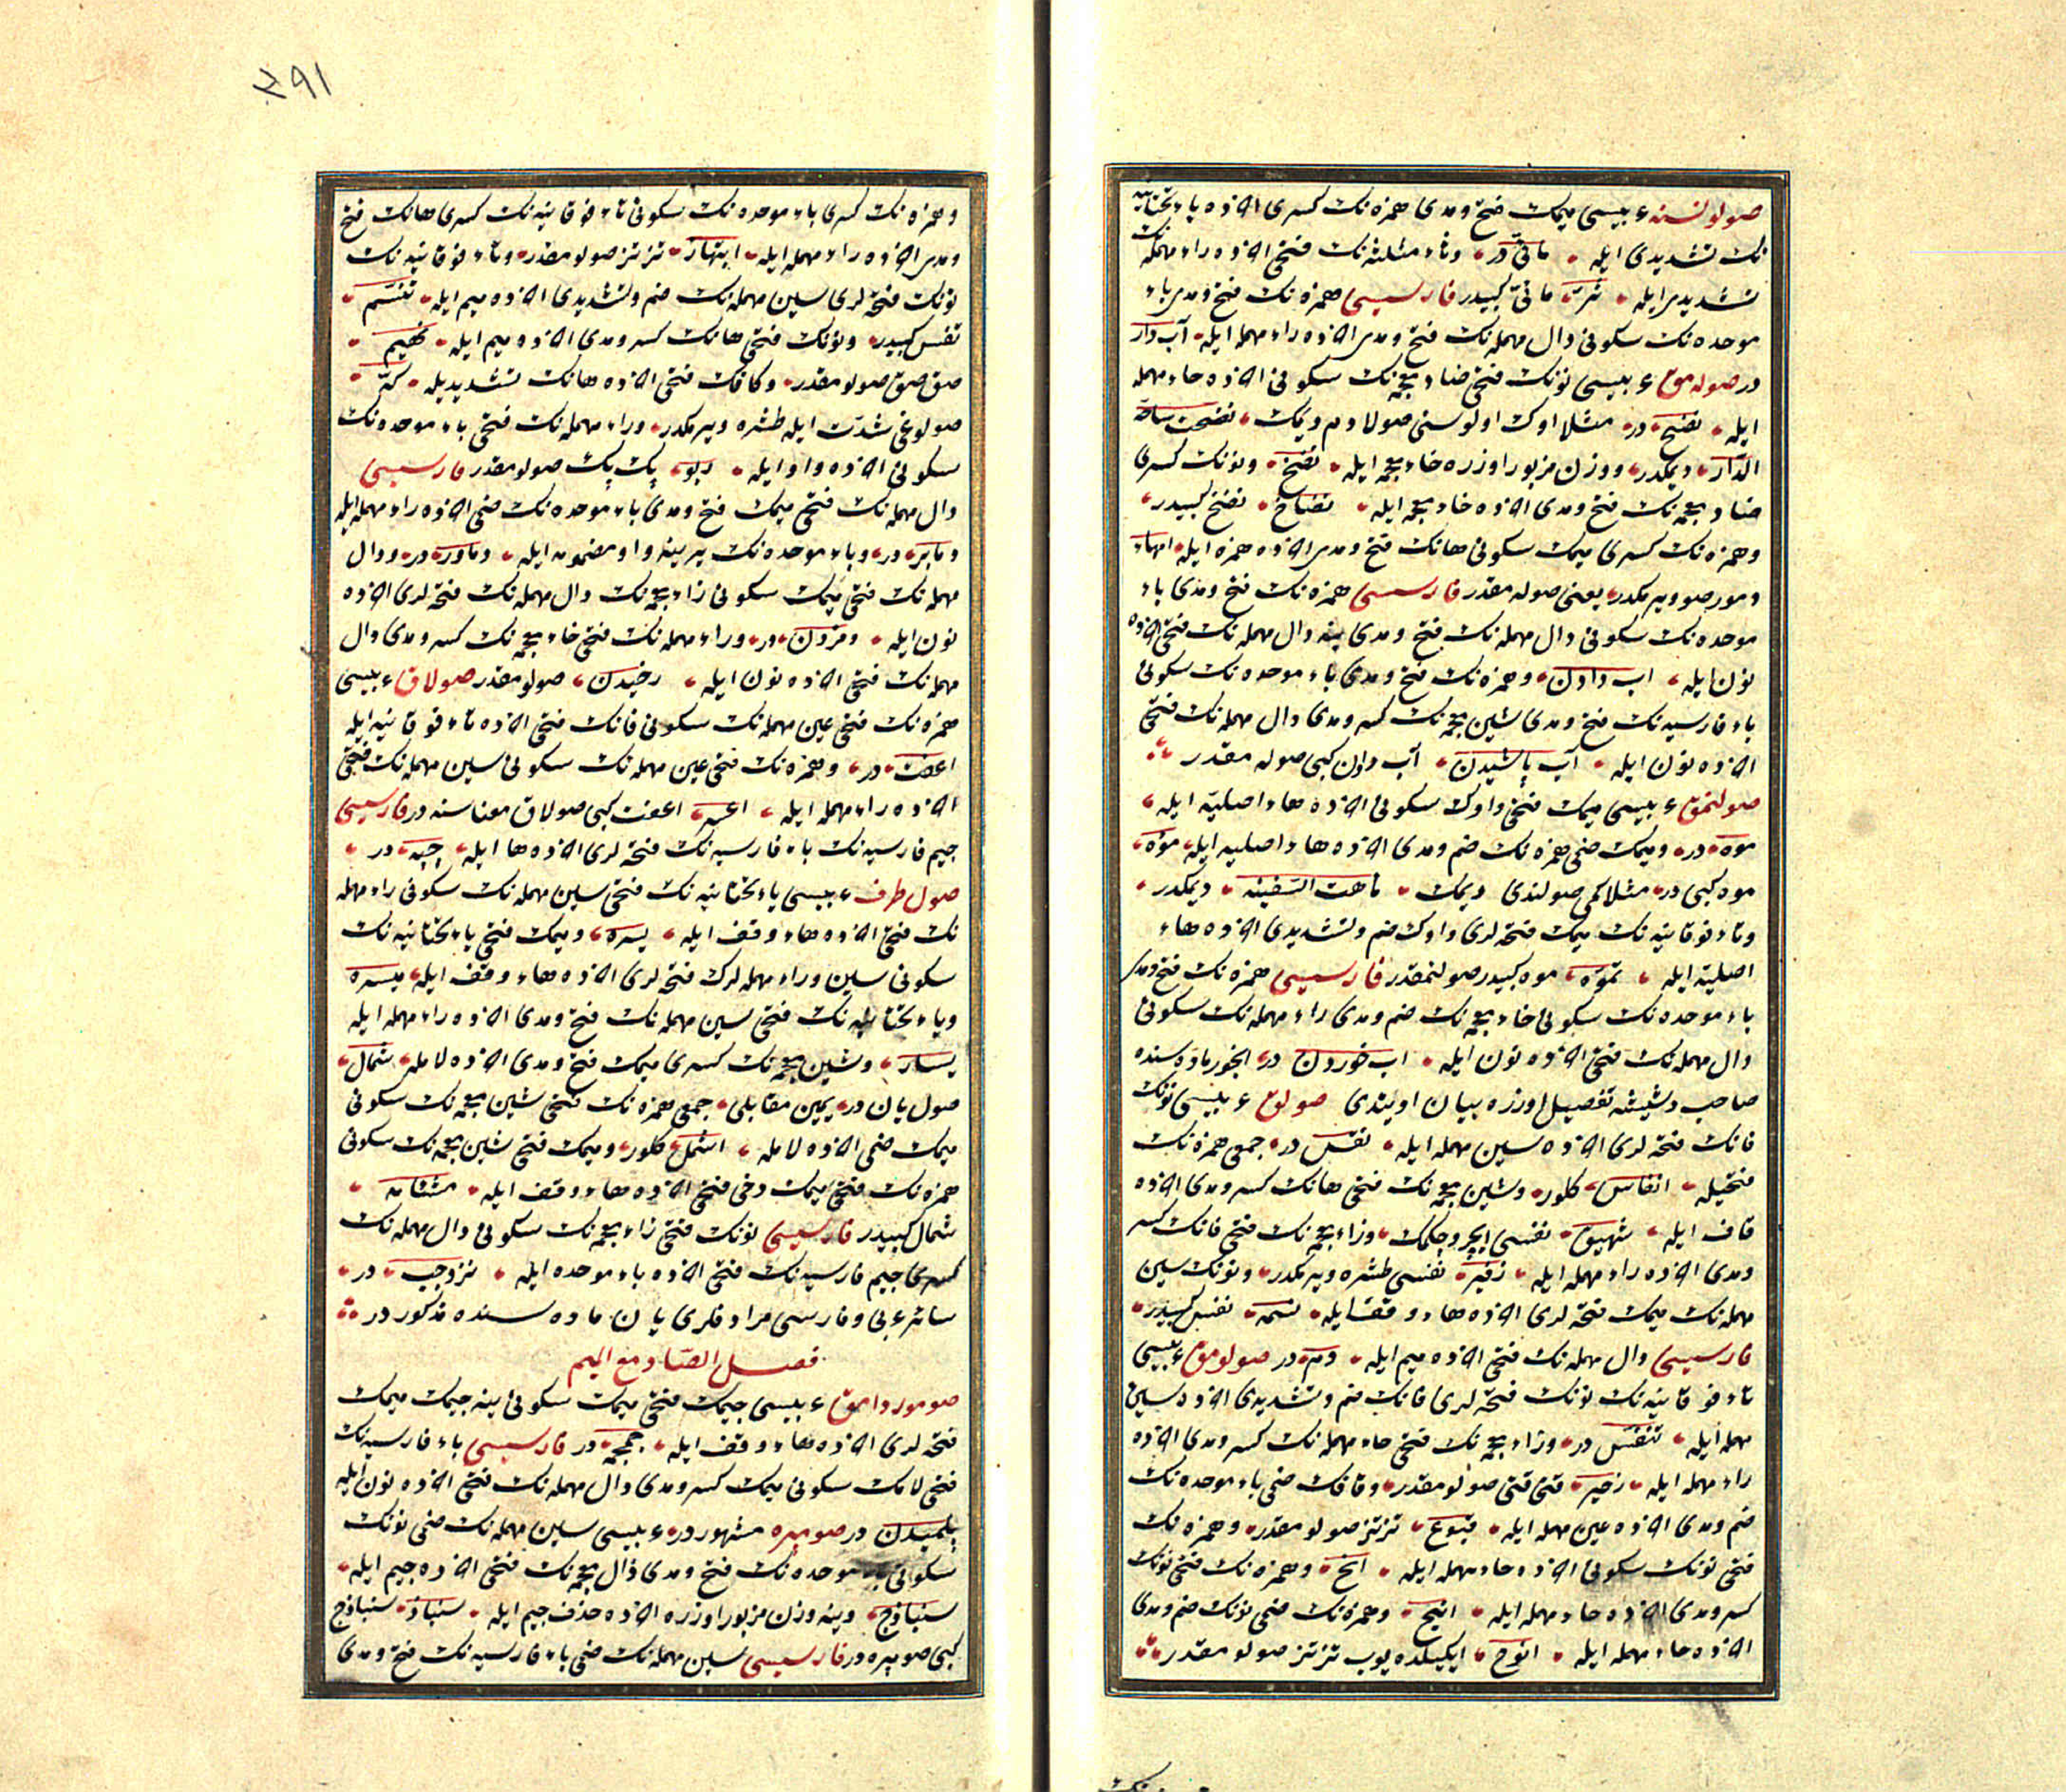 صولونسنه عربیسی میمک فتح ومدی همزه نک کسری اخرده یاء تحتانیه
نک تشدیدی ایله مائیّ در وثاء مثلثه نک فتحی اخرده راء مهمله نک
تشدیدی ایله ثرّ مائیّ کبیدر فارسیسی همزه نک فتح ومدی باء
موحده نک سکونی دال مهمله نک فتح ومدی اخرده راء مهمله ایله آب دار
در صوله مق عربیسی نونک فتحی ضاد معجمه نک سکونی اخرده حاء مهمله
ایله نضح در مثلا اوک اولوسنی صولادم دیمک نضحت ساحة
الدّار دیمکدر ووزن مزبور اوزره خاء معجمه ایله نضخ ونونک کسری
ضاد معجمه نک فتح ومدی اخرده خاء معجمه ایله نضاخ نضخ کبیدر
وهمزه نک کسری میمک سکونی هانک فتح ومدی اخرده همزه ایله امهاء
ومور صو ویرمکدر یعنی صوله مقدر فارسیسی همزه نک فتح ومدی باء
موحده نک سکونی دال مهمله نک فتح ومدی ینه دال مهمله نک فتحی اخرده
نون ایله اب دادن وهمزه نک فتح ومدی باء موحده نک سکونی
باء فارسیه نک فتح ومدی شین معجمه نک کسر ومدی دال مهمله نک فتحی
اخرده نون ایله آب پاشیدن آب دادن کبی صوله مقدر
صولنمق عربیسی میمک فتحی واوک سکونی اخرده هاء اصلیّه ایله
موه در ومیمک ضمی همزه نک ضم ومدی اخرده هاء اصلیه ایله مؤه
موه کبی در مثلا کمی صولندی دیمک ماهت السّفینه دیمکدر
وتاء فوقانیه نک میمک فتحه لری واوک ضم وتشدیدی اخرده هاء
اصلیّه ایله تموّه موه کبیدر صولنمقدر فارسیسی همزه نک فتح ومدی
باء موحده نک سکونی خاء معجمه نک ضم ومدی راء مهمله نک سکونی
دال مهمله نک فتحی اخرده نون ایله اب خوردن در ابخور ماده سنده
صاحب دشیشه تفصیل اوزره بیان اویلدی صولوق عربیسی نونک
فانک فتحه لری اخرده سین مهمله ایله نفس در جمعی همزه نک
فتحیله انفاس کلور وشین معجمه نک فتحی هانک کسر ومدی اخرده
قاف ایله شهیق نفسی ایچرو چکمک وزاء معجمه نک فتحی فانک کسر
ومدی اخرده راء مهمله ایله زفیر نفسی طشره ویرمکدر ونونک سین
مهمله نک میمک فتحه لری اخرده هاء وقف ایله نسمه نفس کبیدر
فارسیسی دال مهمله نک فتحی اخرده میم ایله دم در صولومق عربیسی
تاء فوقانیه نک نونک فتحه لری فانک ضم وتشدیدی اخرده سین
مهمله ایله تنفّس در وزاء معجمه نک فتحی حاء مهمله نک کسر ومدی اخرده
راء مهمله ایله زحیر قتی قتی صولومقدر وقافک ضمی باء موحده نک
ضم ومدی اخرده عین مهمله ایله قبوع تز تز صولومقدر وهمزه نک
فتحی نونک سکونی اخرده حاء مهمله ایله انح وهمزه نک فتحی نونک
کسر ومدی اخرده حاء مهمله ایله انیح وهمزه نک ضمی نونک ضم ومدی
اخرده حاء مهمله ایله انوح ایکیلده یوب تز تز صولومقدر
۳۹۱
وهمزه نک کسری باء موحده نک سکونی تاء فوقانیه نک کسری هانک فتح
ومدی اخرده راء مهمله ایله ابتهار تز تز صولومقدر وتاء فوقانیه نک
نونک فتحه لری سین مهمله نک ضم وتشدیدی اخرده میم ایله تنسّم
تنفس کبیدر ونونک فتحی هانک کسر ومدی اخرده میم ایله نهیم
صق صق صولومقدر وکافک فتحی اخرده هانک تشدیدیله کهّ
صولوغی شدّت ایله طشره ویرمکدر وراء مهمله نک فتحی باء موحده نک
سکونی اخرده واو ایله ربو پک پک صولومقدر فارسیسی
دال مهمله نک فتحی میمک فتح ومدی باء موحده نک ضمی اخرده راء مهمله ایله
دمابر در وباء موحده نک یرینه واو مضمومه ایله دماور در ودال
مهمله نک فتحی میمک سکونی زاء معجمه نک دال مهمله نک فتحه لری اخرده
نون ایله دمزدن در وراء مهمله نک فتحی خاء معجمه نک کسر ومدی دال
مهمله نک فتحی اخرده نون ایله رخیدن صولومقدر صولاق عربیسی
همزه نک فتحی عین مهمله نک سکونی فانک فتحی اخرده تاء فوقانیه ایله
اعفت در وهمزه نک فتحی عین مهمله نک سکونی سین مهمله نک فتحی
اخرده راء مهمله ایله اعسر اعفت کبی صولاق معناسنه در فارسیسی
جیم فارسیه نک باء فارسیه نک فتحه لری اخرده ها ایله چپه در
صول طرف عربیسی یاء تحتانیه نک فتحی سین مهمله نک سکونی راء مهمله
نک فتحی اخرده هاء وقف ایله یسره ومیمک فتحی یاء تحتانیه نک
سکونی سین وراء مهمله لرک فتحه لری اخرده هاء وقف ایله میسره
ویاء تحتانیه نک فتحی سین مهمله نک فتح ومدی اخرده راء مهمله ایله
یسار وشین معجمه نک کسری میمک فتح ومدی اخرده لامله شمال
صول یان در یمین مقابلی جمعی همزه نک فتحی شین معجمه نک سکونی
میمک ضمی اخرده لامله اشمل کلور ومیمک فتحی شین معجمه نک سکونی
همزه نک فتحی میمک دخی فتحی اخرده هاء وقف ایله مشئمه
شمال کبیدر فارسیسی نونک فتحی زاء معجمه نک سکونی دال مهمله نک
کسری جیم فارسیه نک فتحی اخرده باء موحده ایله نزدچب در
سائر عربی وفارسی مرادفلری یان ماده سنده مذکور در
فصل الصّاد مع المیم
صومورداممق عربیسی جیمک فتحی میمک سکونی ینه جیمک میمک
فتحه لری اخرده هاء وقف ایله جمجمه در فارسیسی باء فارسیه نک
فتحی لامک سکونی میمک کسر ومدی دال مهمله نک فتحی اخرده نون ایله
پلمیدن در صومپره مشهور در عربیسی سین مهمله نک ضمی نونک
سکونی باء موحده نک فتح ومدی ذال معجمه نک فتحی اخرده جیم ایله
سنباذج وینه وزن مزبور اوزره اخرده حذف جیم ایله سنباذ سنباذج
کبی صومپره در فارسیسی سین مهمله نک ضمی باء فارسیه نک فتح ومدی